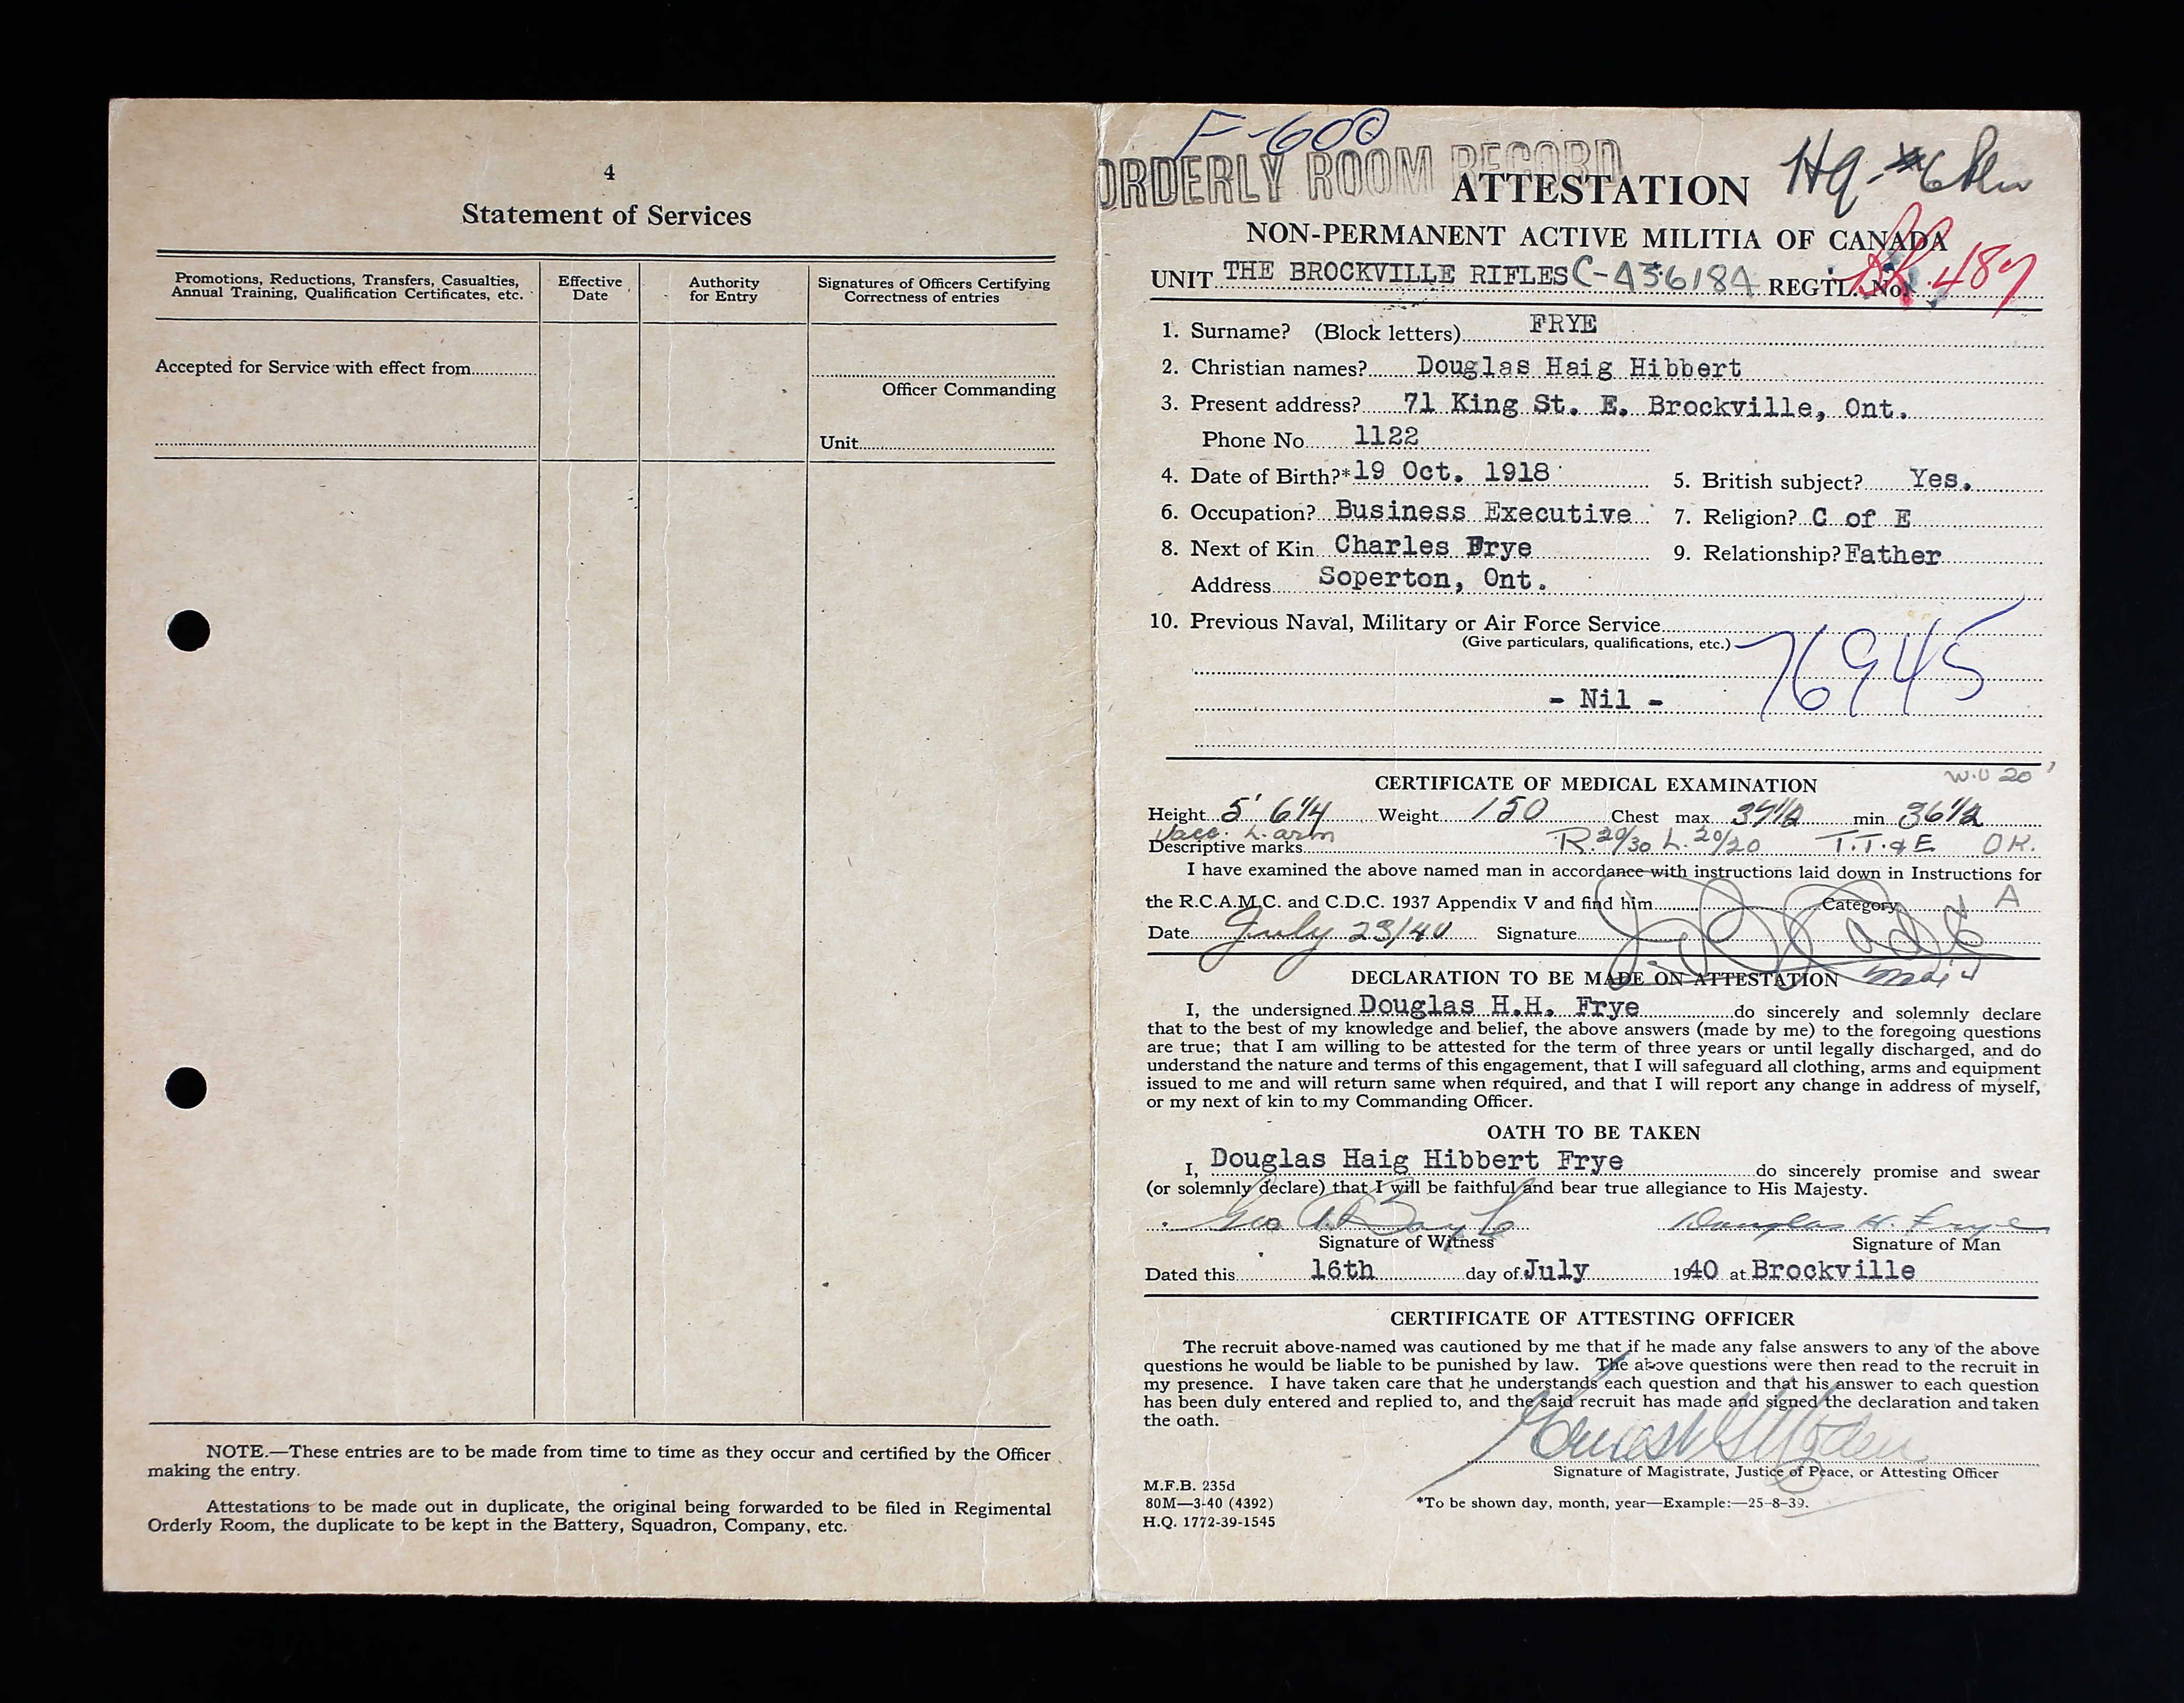 4
Statement of Services
Promotions, Reductions, Transfers, Casualties, Annual Training, Qualification Certificates, etc.
Effective Date
Authority for Entry
Signatures of Officers Certifying Correctness of entries
Accepted for Service with effect from
Officer Commanding
Unit
NOTE.—These entries are to be made from time to time as they occur and certified by the Officer
making the entry.
Attestations to be made out in duplicate, the original being forwarded to be filed in Regimental
Orderly Room, the duplicate to be kept in the Battery, Squadron, Company, etc.
F-600
ORDERLY ROOM RECORD
ATTESTATION
NON-PERMANENT ACTIVE MILITIA OF CANADA
UNIT THE BROCKVILLE RIFLES C-436184 REGTL. No. 487
1. Surname? (Block letters) FRYE
2. Christian names? Douglas Haig Hibbert
3. Present address? 71 King St. E. Brockville, Ont.
Phone No. 1122
4. Date of Birth?* 19 Oct. 1918 5. British subject? Yes.
6. Occupation? Business Executive 7. Religion? C of E
8. Next of Kin Charles Frye 9. Relationship? Father
Address Soperton, Ont.
10. Previous Naval, Military or Air Force Service
(Give particulars, qualifications, etc.)
76945
- Nil -
CERTIFICATE OF MEDICAL EXAMINATION
Height 5' 6 1/4 Weight 150 Chest max 37 1/2 min 36 1/2
Vacc. L. arm
Descriptive marks R. 20/30 L. 20/20 T.T. & E OK.
I have examined the above named man in accordance with instructions laid down in Instructions for
the R.C.A.M.C. and C.D.C. 1937 Appendix V and find him Category A
Date July 23/40 Signature
DECLARATION TO BE MADE ON ATTESTATION
I, the undersigned Douglas H.H. Frye do sincerely and solemnly declare
that to the best of my knowledge and belief, the above answers (made by me) to the foregoing questions
are true; that I am willing to be attested for the term of three years or until legally discharged, and do
understand the nature and terms of this engagement, that I will safeguard all clothing, arms and equipment
issued to me and will return same when required, and that I will report any change in address of myself,
or my next of kin to my Commanding Officer.
OATH TO BE TAKEN
I, Douglas Haig Hibbert Frye do sincerely promise and swear
(or solemnly declare) that I will be faithful and bear true allegiance to His Majesty.
Douglas H. Frye
Signature of Witness Signature of Man
Dated this 16th day of July 1940 at Brockville
CERTIFICATE OF ATTESTING OFFICER
The recruit above-named was cautioned by me that if he made any false answers to any of the above
questions he would be liable to be punished by law. The above questions were then read to the recruit in
my presence. I have taken care that he understands each question and that his answer to each question
has been duly entered and replied to, and the said recruit has made and signed the declaration and taken
the oath.
Signature of Magistrate, Justice of Peace, or Attesting Officer
M.F.B. 235d
80M—3-40 (4392)
H.Q. 1772-39-1545
*To be shown day, month, year—Example:—25-8-39.